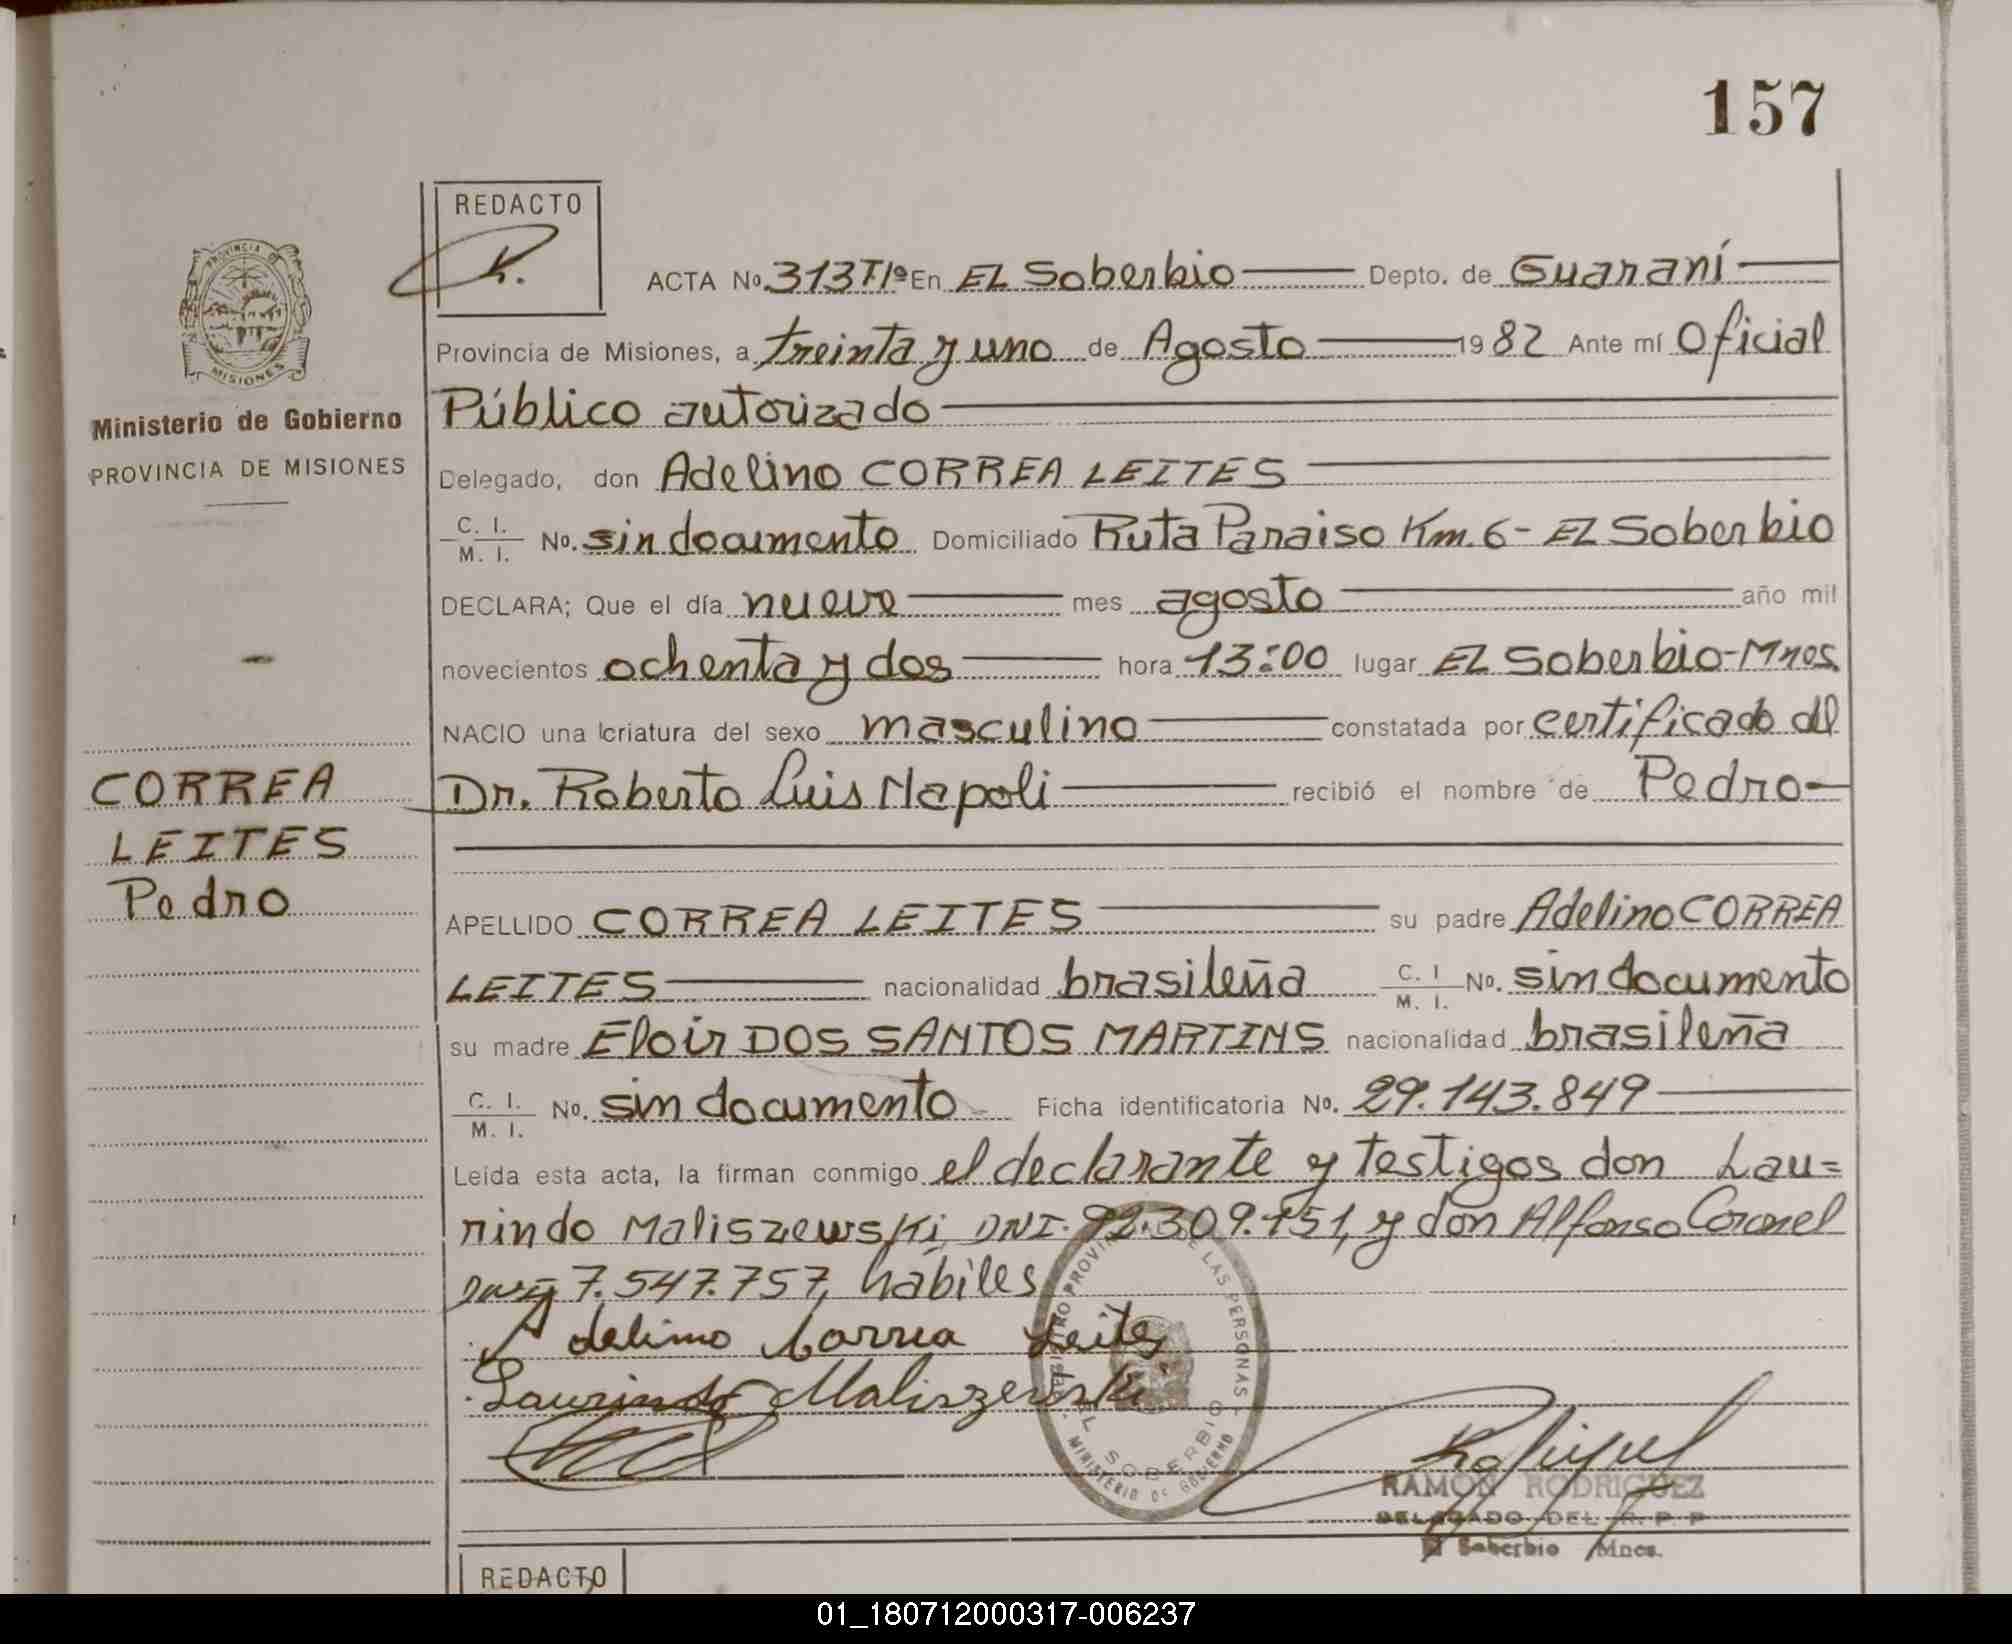 157
REDACTO
PROVINCIA DE
MISIONES
Ministerio de Gobierno
PROVINCIA DE MISIONES
CORREA
LEITES
Pedro
ACTA No. 313 T1º En EL Soberbio Depto. de Guaraní
Provincia de Misiones, a treinta y uno de Agosto 1982 Ante mí Oficial
Público autorizado
Delegado, don Adelino CORREA LEITES
C. I. / M. I. No. sin documento Domiciliado Ruta Paraiso Km. 6 - EL Soberbio
DECLARA; Que el día nueve mes agosto año mil
novecientos ochenta y dos hora 13:00 lugar EL Soberbio-Mnes
NACIO una criatura del sexo masculino constatada por certificado del
Dr. Roberto Luis Napoli recibió el nombre de Pedro-
APELLIDO CORREA LEITES su padre Adelino CORREA
LEITES nacionalidad brasileña C. I / M. I. No. sin documento
su madre Eloir DOS SANTOS MARTINS nacionalidad brasileña
C. I. / M. I. No. sin documento Ficha identificatoria No. 29.143.849
Leída esta acta, la firman conmigo el declarante y testigos don Lau=
rindo Maliszewski, DNI. 92.309.151, y don Alfonso Coronel
DNI 7.547.757, hábiles
Adelimo Correa Leites
Laurindo Maliszewski
REGISTRO PROVINCIAL DE LAS PERSONAS
EL SOBERBIO
MINISTERIO DE GOBIERNO
RAMON RODRIGUEZ
DELEGADO DEL R. P. P
El Soberbio Mnes.
REDACTO
01_180712000317-006237